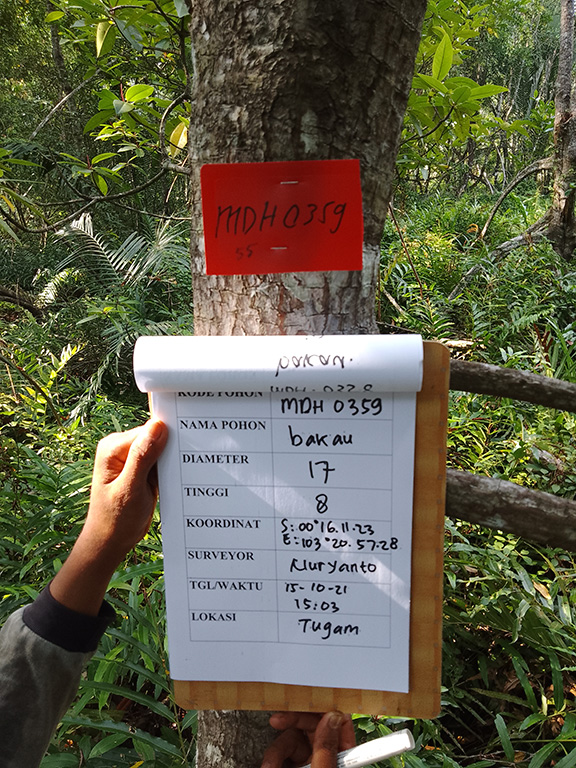 MDH 0359
55
KODE POHON MDH 0359
NAMA POHON bakau
DIAMETER 17
TINGGI 8
KOORDINAT S: 00°16.11.23
E: 103°20.57.28
SURVEYOR Nuryanto
TGL/WAKTU 15-10-21
15:03
LOKASI Tugam